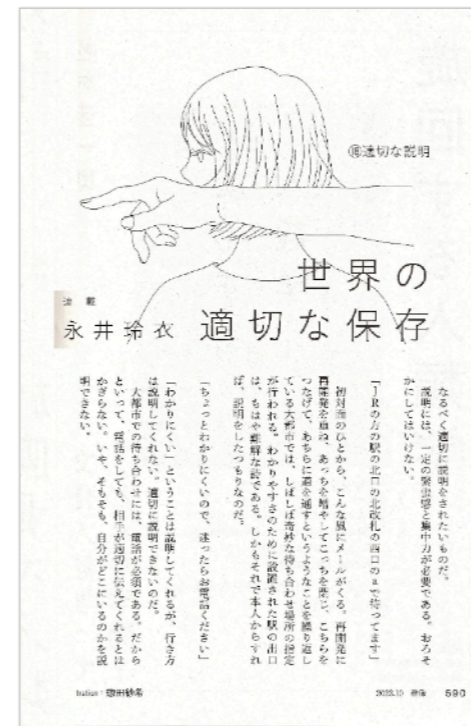 ⑱適切な説明
世界の
適切な保存
連載
永井玲衣
なるべく適切に説明をされたいものだ。
説明には、一定の緊張感と集中力が必要である。おろそ
かにしてはいけない。
「JRの方の駅の北口の北改札の西口のaで待ってます」
初対面のひとから、こんな風にメールがくる。再開発に
再開発を重ね、あっちを増やしてこっちを閉じ、こちらを
つなげて、あちらに道を通すというようなことを繰り返し
ている大都市では、しばしば奇妙な待ち合わせ場所の指定
が行われる。わかりやすさのために設置された駅の出口
は、もはや難解な詩である。しかもそれで本人からすれ
ば、説明をしたつもりなのだ。
「ちょっとわかりにくいので、迷ったらお電話ください」
「わかりにくい」ということは説明してくれるが、行き方
は説明してくれない。適切に説明できないのだ。
大都市での待ち合わせには、電話が必須である。だから
といって、電話をしても、相手が適切に伝えてくれるとは
かぎらない。いや、そもそも、自分がどこにいるのかを説
明できない。
tration：惣田紗希
2023.10 群像 590